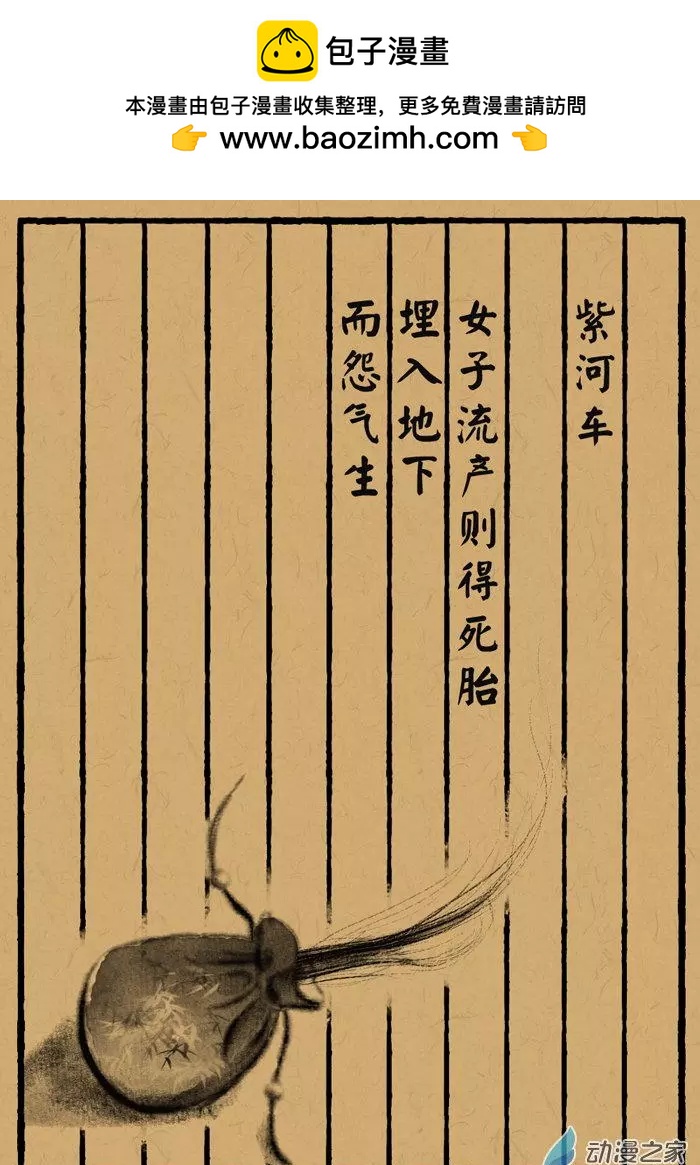 包子漫畫
本漫畫由包子漫畫收集整理，更多免費漫畫請訪問
👉 www.baozimh.com 👈
紫河车
女子流产则得死胎
埋入地下
而怨气生
动漫之家